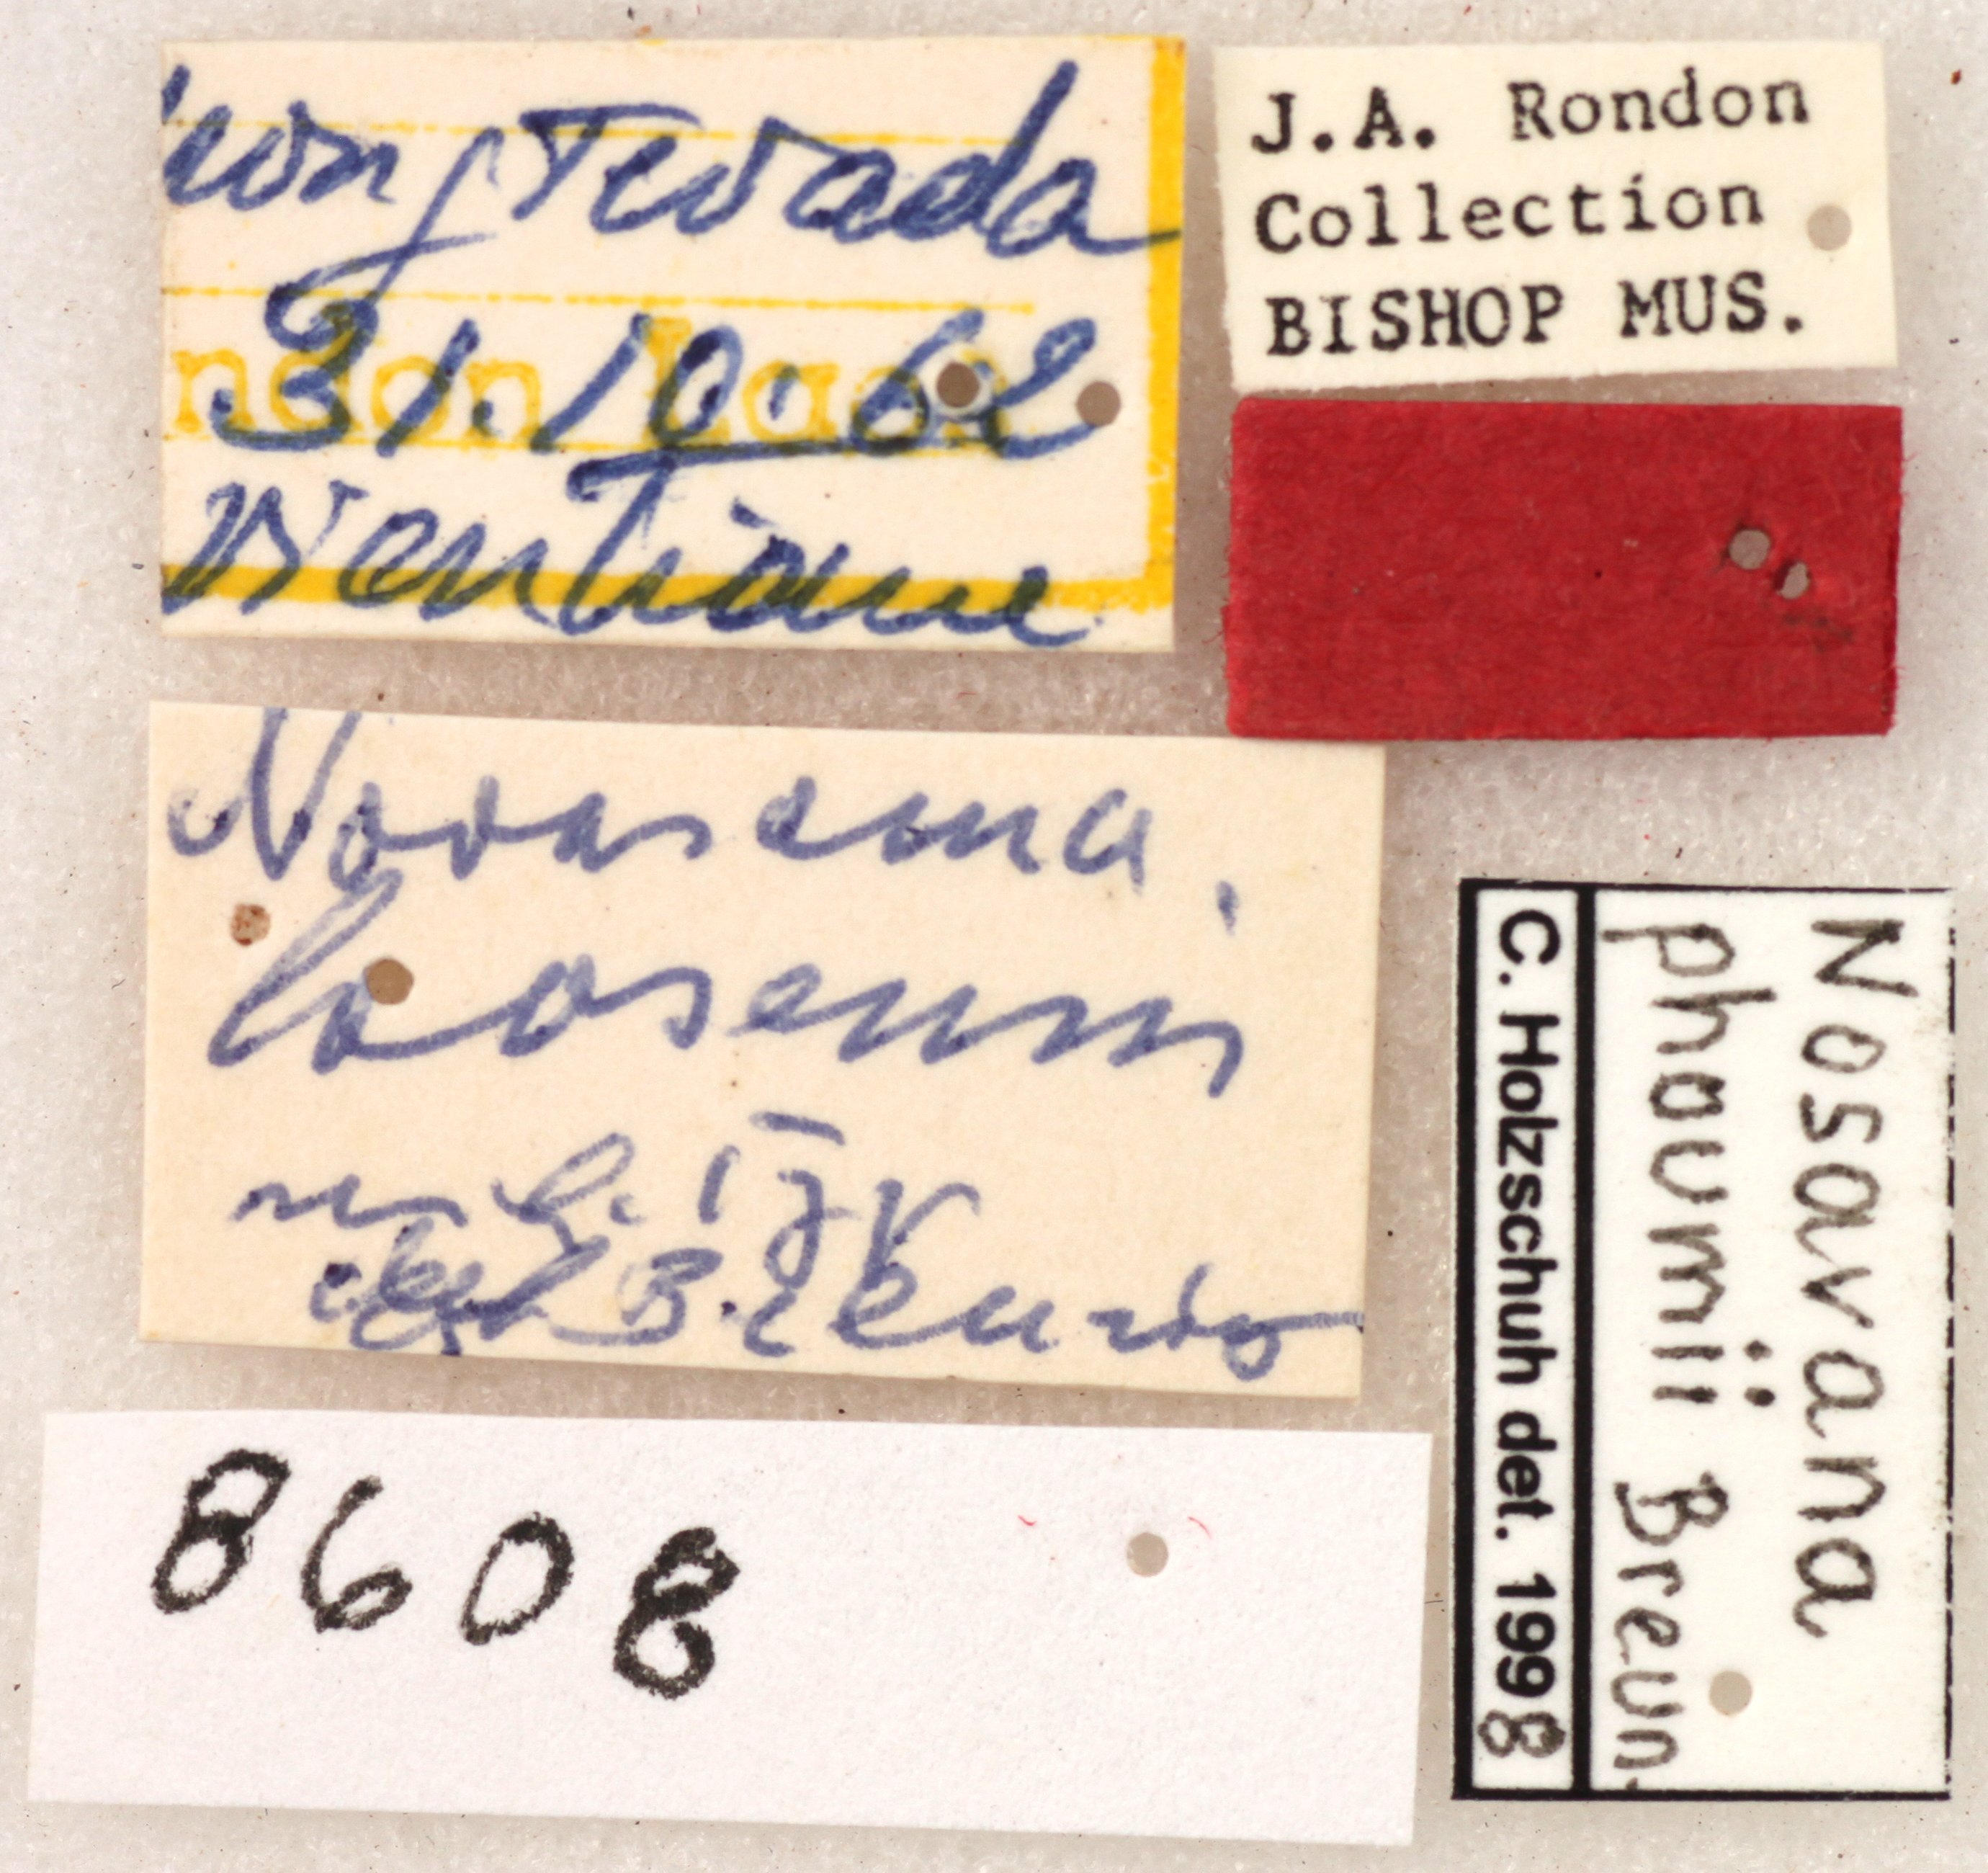 Tevada
ndon Laos
31.10.62
Vientiane
J.A. Rondon
Collection
BISHOP MUS.
laosensis
Typ
det Breuning
8608
Nosavana
phoumii Breun.
C. Holzschuh det. 1998